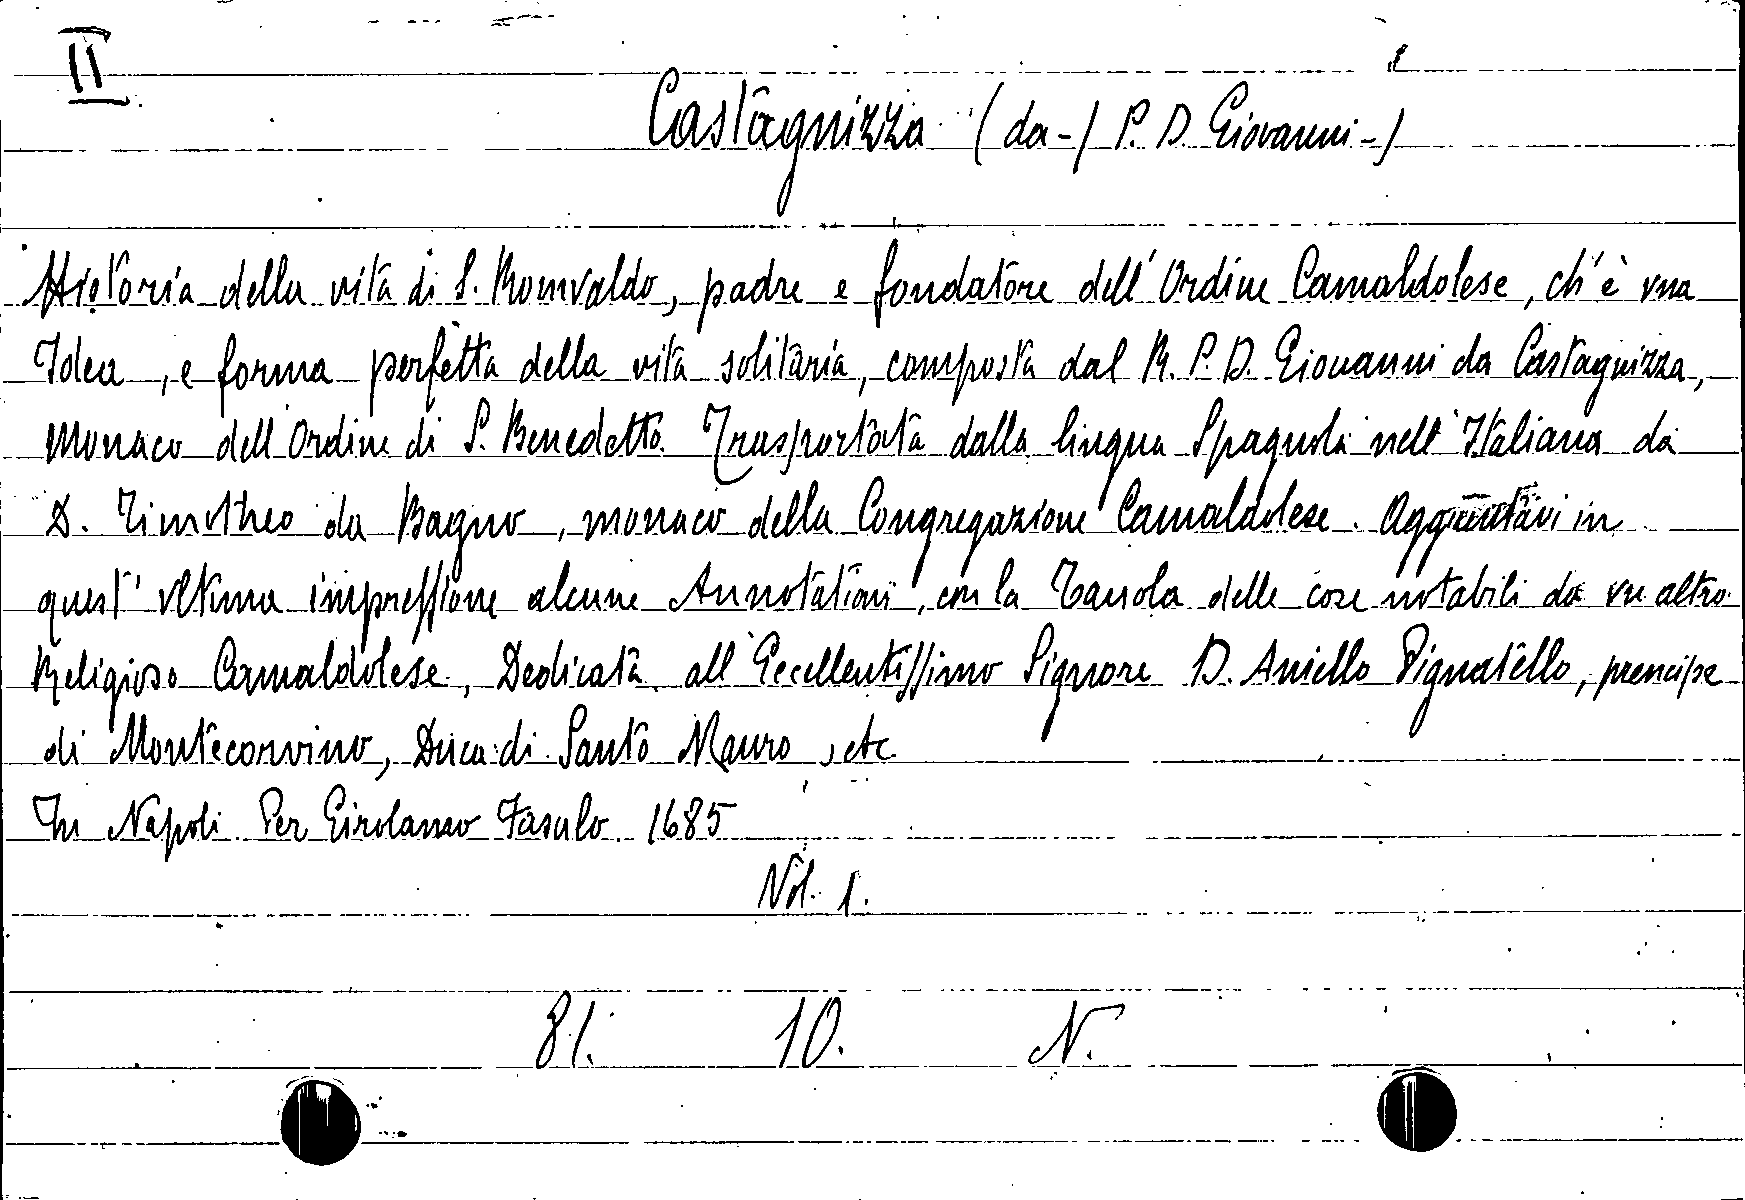 II
Castagnizza (da-/ P. D. Giovanni-)
Historia della vita di S. Romvaldo, padre e fondatore dell'Ordine Camaldolese, ch'è vna
Idea, e forma perfetta della vita solitaria, composta dal R. P. D. Giouanni da Castagnizza,
Monaco dell'Ordine di S. Benedetto. Trasportata dalla lingua Spagnola nell'Italiana da
D. Timotheo da Bagno, monaco della Congregazione Camaldolese. Aggiuntaui in
quest'vltima impressione alcune Annotationi, con la Tauola delle cose notabili da vn altro
Religioso Camaldolese, Dedicata all'Eccellentissimo Signore D. Aniello Pignatello, prencipe
di Montecorvino, Duca di Santo Mauro, etc.
In Napoli Per Girolamo Fasulo 1685
Vol. 1.
81. 10. N.